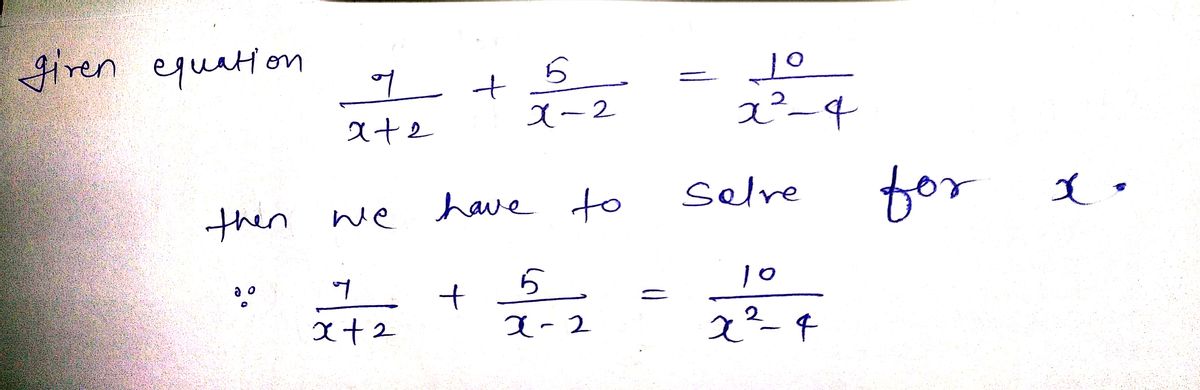 given equation 7/(x+2) + 5/(x-2) = 10/(x²-4)
then we have to solve for x.
∵ 7/(x+2) + 5/(x-2) = 10/(x²-4)